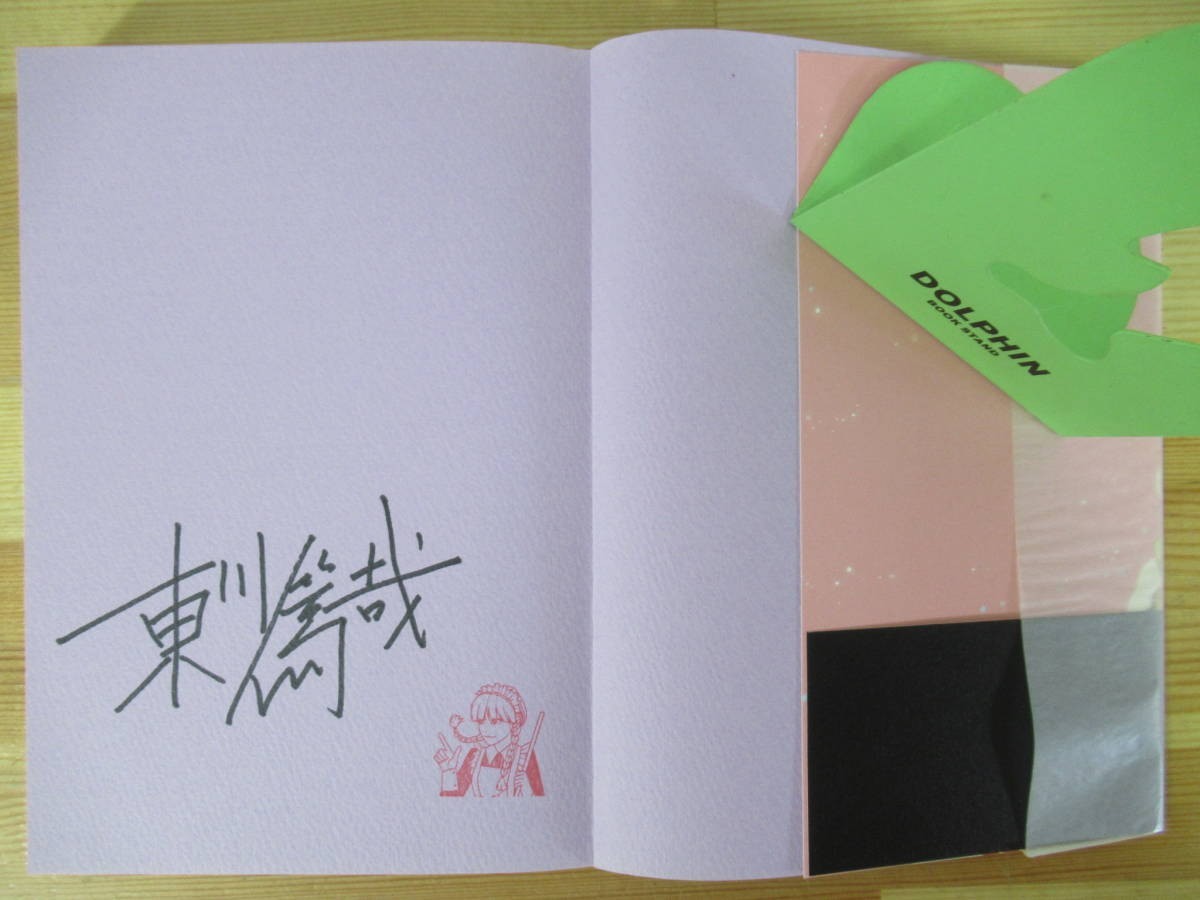 東川篤哉
DOLPHIN
BOOK STAND